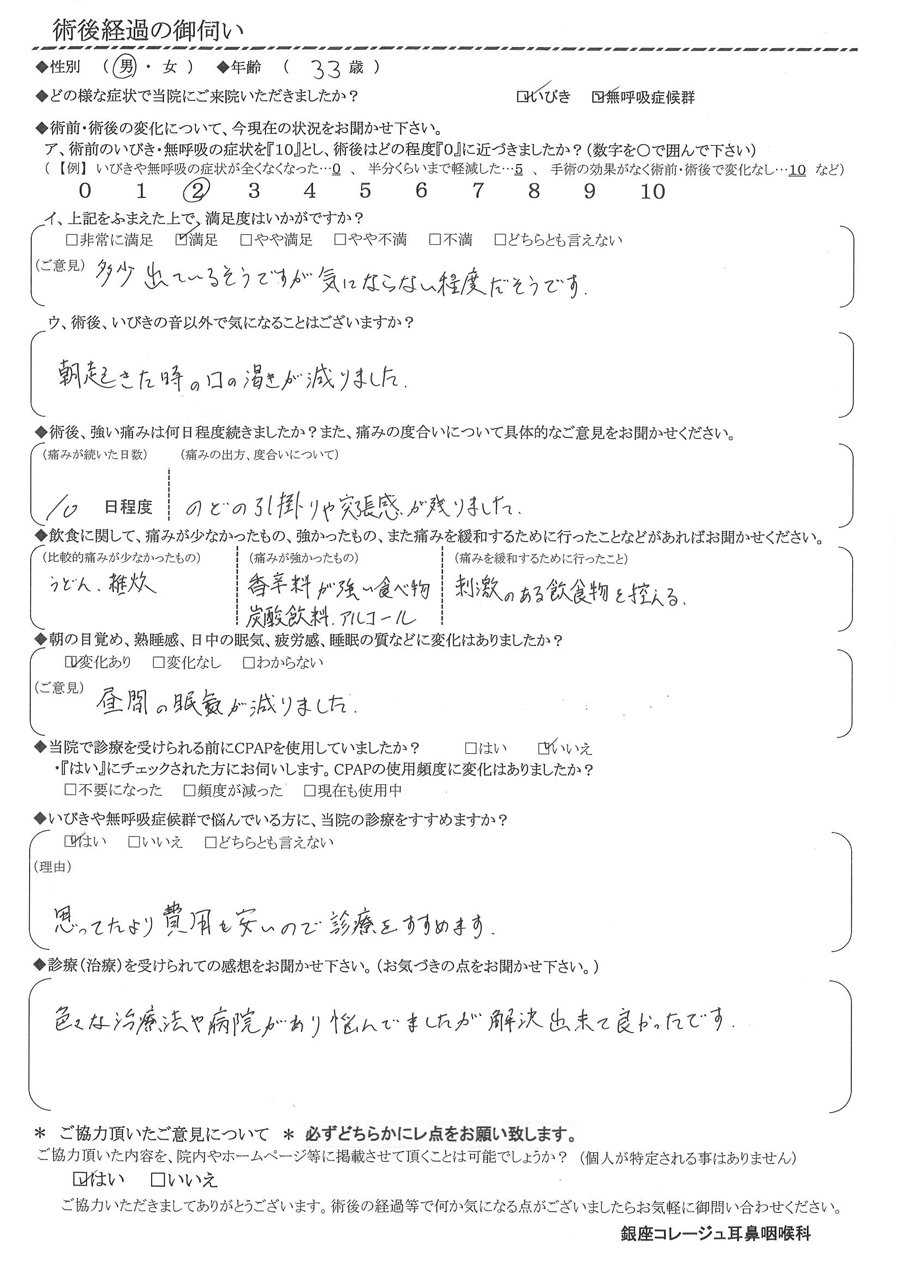 術後経過の御伺い
◆性別 （ 男 ・ 女 ） ◆年齢 （ 33 歳 ）
◆どの様な症状で当院にご来院いただきましたか？ ☑いびき ☑無呼吸症候群
◆術前・術後の変化について、今現在の状況をお聞かせ下さい。
ア、術前のいびき・無呼吸の症状を『10』とし、術後はどの程度『0』に近づきましたか？（数字を〇で囲んで下さい）
（ 【例】 いびきや無呼吸の症状が全くなくなった…0 、 半分くらいまで軽減した…5 、 手術の効果がなく術前・術後で変化なし…10 など）
0 1 2 3 4 5 6 7 8 9 10
イ、上記をふまえた上で、満足度はいかがですか？
□非常に満足 ☑満足 □やや満足 □やや不満 □不満 □どちらとも言えない
（ご意見） 多少出ているそうですが気にならない程度だそうです.
ウ、術後、いびきの音以外で気になることはございますか？
朝起きた時の口の渇きが減りました.
◆術後、強い痛みは何日程度続きましたか？また、痛みの度合いについて具体的なご意見をお聞かせください。
（痛みが続いた日数） （痛みの出方、度合いについて）
10 日程度 のどの引掛りや突張感が残りました.
◆飲食に関して、痛みが少なかったもの、強かったもの、また痛みを緩和するために行ったことなどがあればお聞かせください。
（比較的痛みが少なかったもの） （痛みが強かったもの） （痛みを緩和するために行ったこと）
うどん、雑炊 香辛料が強い食べ物 刺激のある飲食物を控える.
炭酸飲料.アルコール
◆朝の目覚め、熟睡感、日中の眠気、疲労感、睡眠の質などに変化はありましたか？
☑変化あり □変化なし □わからない
（ご意見） 昼間の眠気が減りました.
◆当院で診療を受けられる前にCPAPを使用していましたか？ □はい ☑いいえ
・『はい』にチェックされた方にお伺いします。CPAPの使用頻度に変化はありましたか？
□不要になった □頻度が減った □現在も使用中
◆いびきや無呼吸症候群で悩んでいる方に、当院の診療をすすめますか？
☑はい □いいえ □どちらとも言えない
（理由）
思ってたより費用も安いので診療をすすめます.
◆診療（治療）を受けられての感想をお聞かせ下さい。（お気づきの点をお聞かせ下さい。）
色々な治療法や病院があり悩んでましたが解決出来て良かったです.
＊ ご協力頂いたご意見について ＊ 必ずどちらかにレ点をお願い致します。
ご協力頂いた内容を、院内やホームページ等に掲載させて頂くことは可能でしょうか？ （個人が特定される事はありません）
☑はい □いいえ
ご協力いただきましてありがとうございます。術後の経過等で何か気になる点がございましたらお気軽に御問い合わせください。
銀座コレージュ耳鼻咽喉科